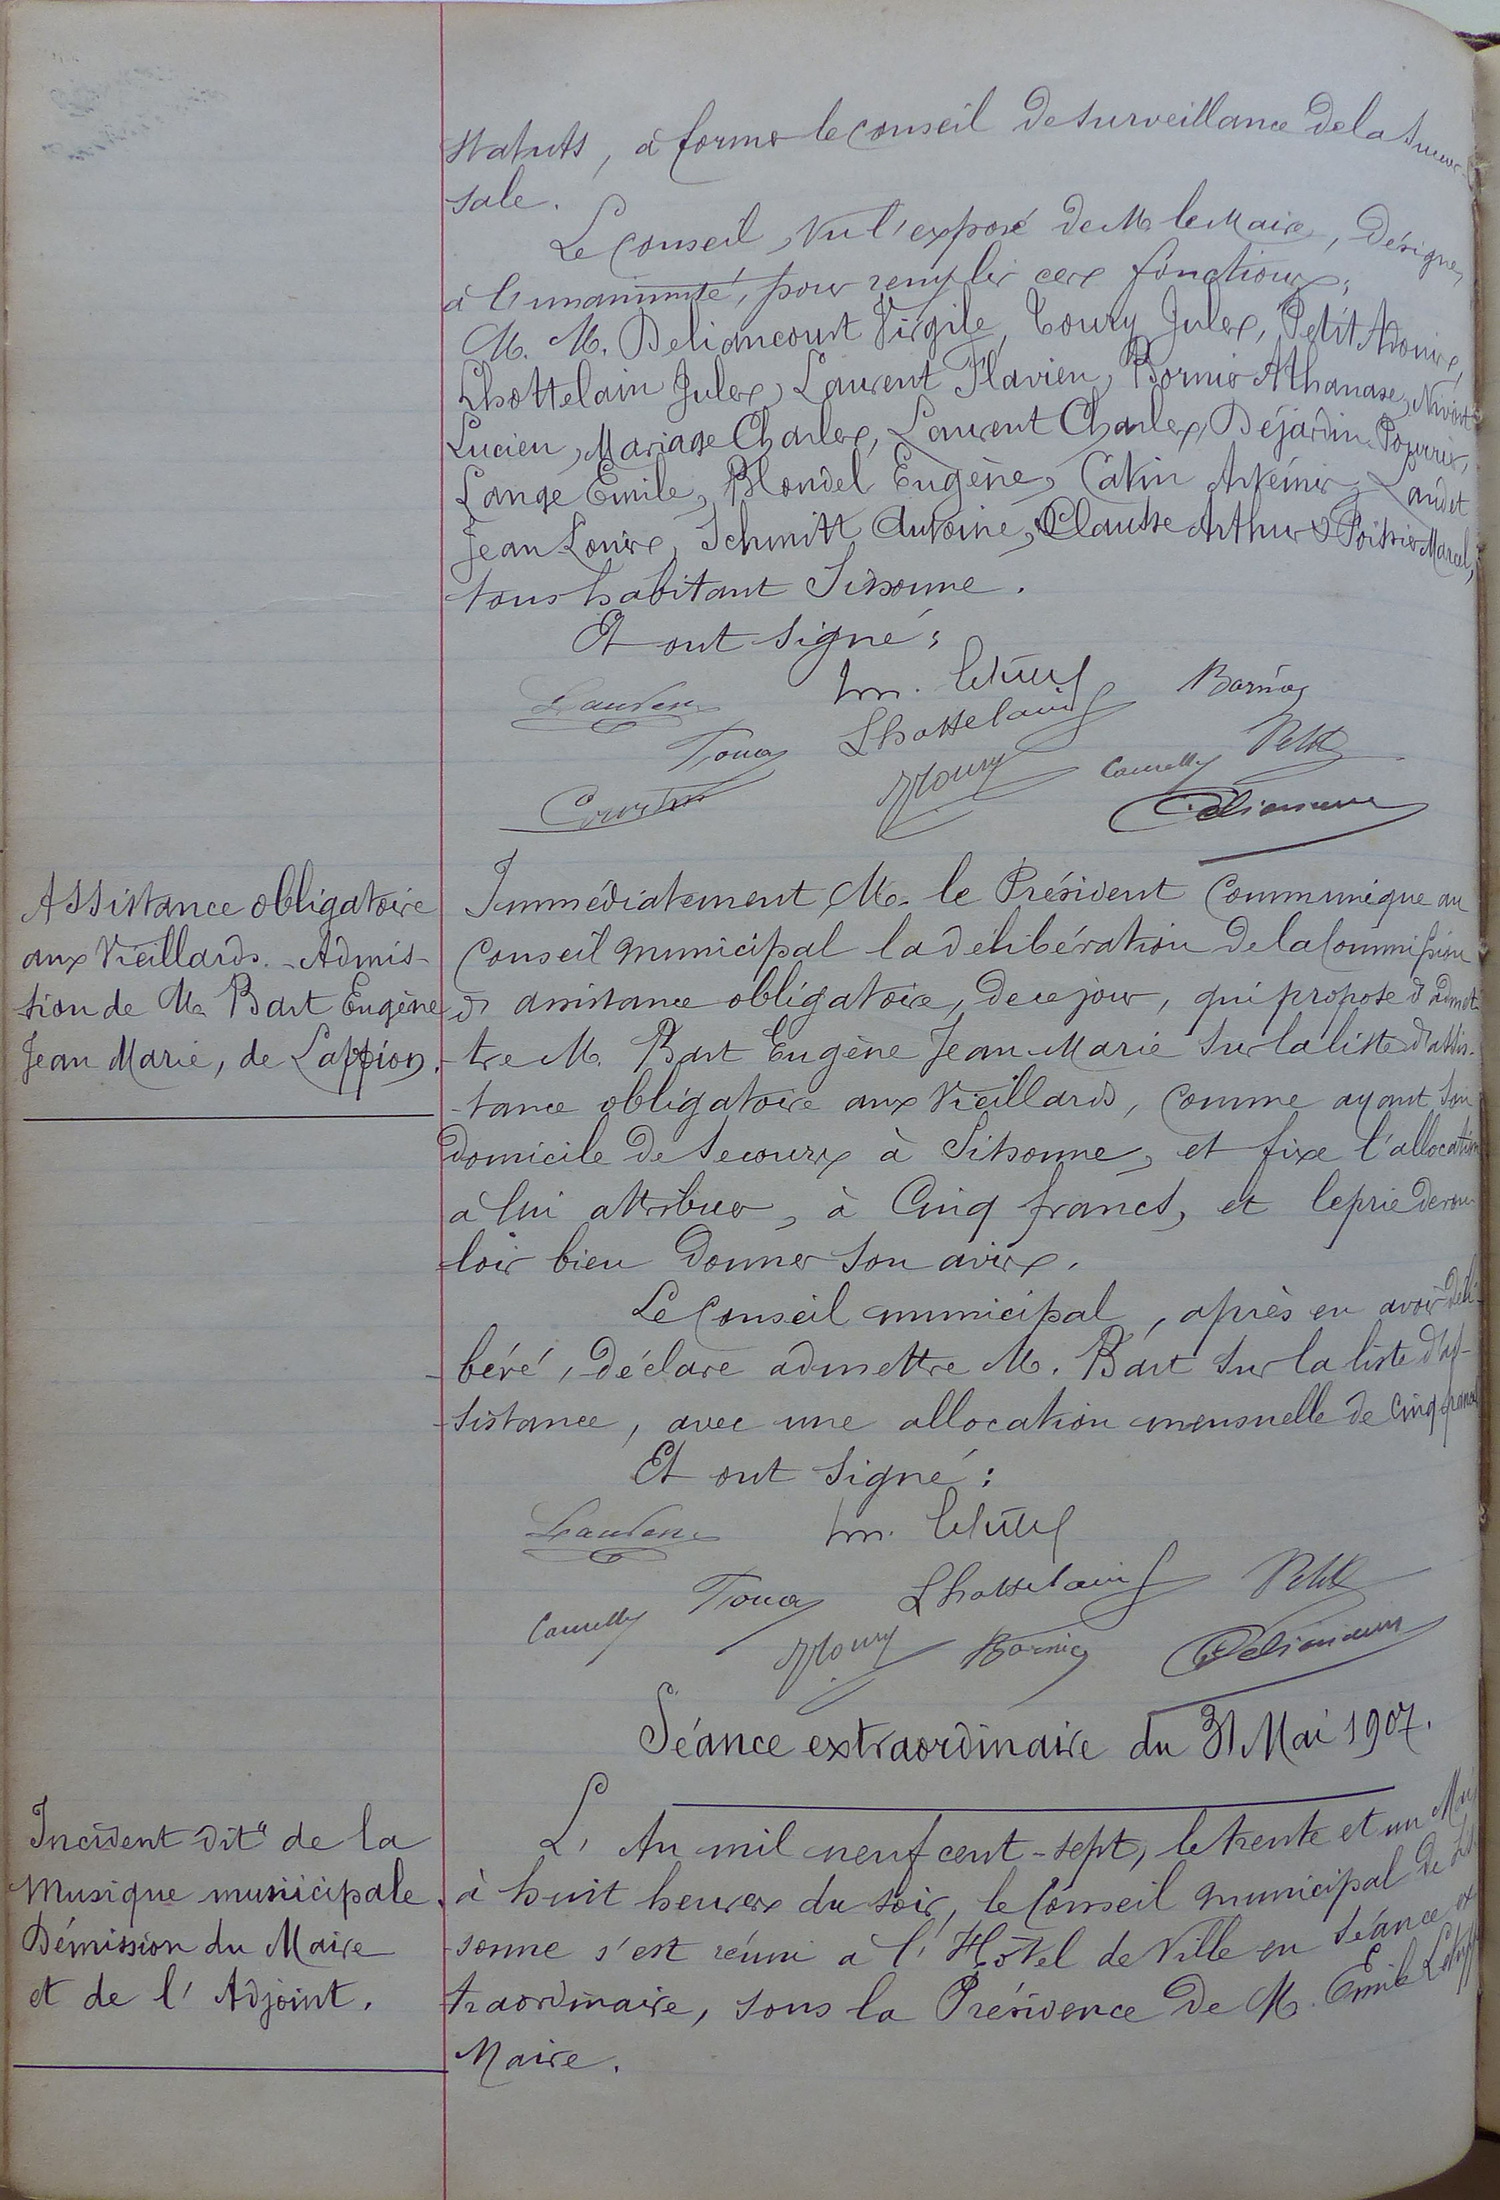 statuts, à former le conseil de surveillance de la Succur-
sale.
Le Conseil, Vu l'exposé de M. le Maire, désigne,
à l'unanimité, pour remplir ces fonctions,
M. M. Deliancourt Virgile, Toury Jules, Petit
Lhottelain Jules, Laurent Flavien, Bornier Athanase, Nivoit
Lucien, Mariage Charles, Laurent Charles, Déjardin
Lange Emile, Blondel Eugène, Catin Artémir, Landet
Jean Louis, Schmitt Antoine, Clausse Arthur & Poissier Marcel,
tous habitant Sissonne.
Et ont signé :
Lhottelain
Petit
Assistance obligatoire
aux Vieillards. - Admis-
sion de M. Bart Eugène
Jean Marie, de Lappion.
Immédiatement, M. le Président communique au
Conseil municipal la délibération de la Commission
d'assistance obligatoire, de ce jour, qui propose d'admet
tre M. Bart Eugène Jean Marie sur la liste d'assis-
-tance obligatoire aux Vieillards, comme ayant son
domicile de secours à Sissonne, et fixe l'allocation
à lui attribuer, à Cinq francs, et le prie de vou
loir bien donner son avis.
Le Conseil municipal, après en avoir déli-
-béré, déclare admettre M. Bart sur la liste d'as-
-sistance, avec une allocation mensuelle de cinq francs
Et ont signé :
Lhottelain
Petit
Séance extraordinaire du 31 Mai 1907.
Incident dit "de la
Musique municipale.
Démission du Maire
et de l'Adjoint.
L'An mil neuf cent-sept, le trente et un Mai
à huit heures du soir, le Conseil municipal de Sis
sonne s'est réuni à l'Hôtel de Ville en séance ex
traordinaire, sous la Présidence de M. Emile
Maire.